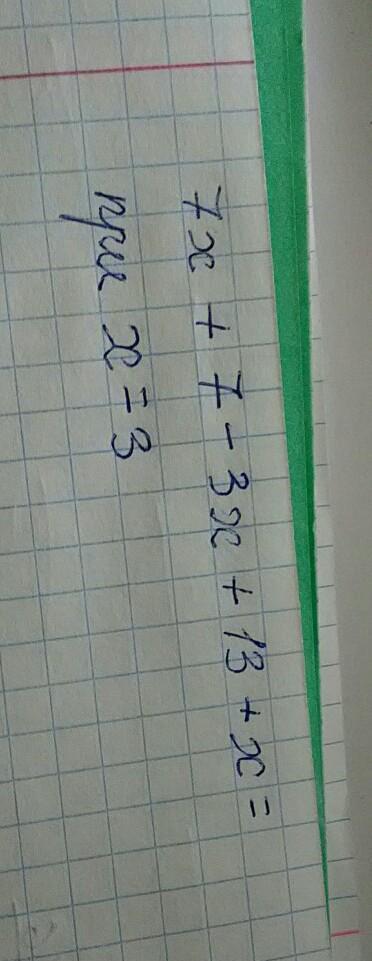 7x + 7 - 3x + 13 + x =
при x = 3